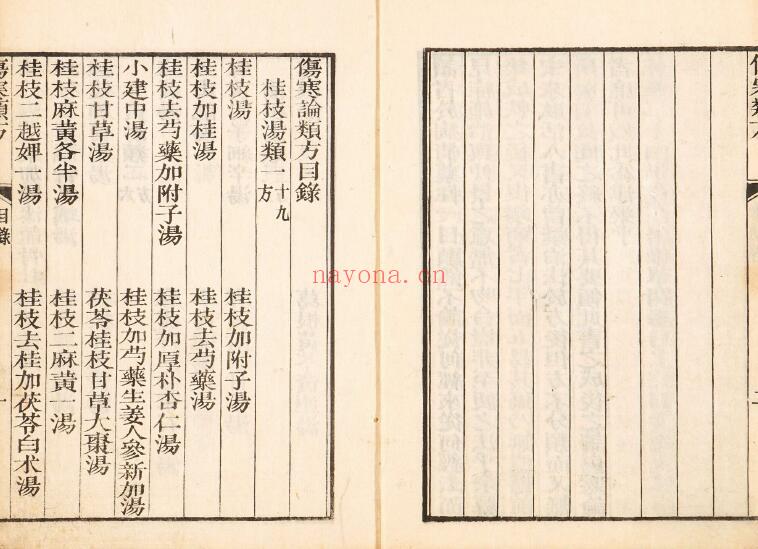 傷寒類方
傷寒論類方目錄
桂枝湯類一十九方
桂枝湯　桂枝加附子湯
桂枝加桂湯　桂枝去芍藥湯
桂枝去芍藥加附子湯　桂枝加厚朴杏仁湯
小建中湯　桂枝加芍藥生姜人參新加湯
桂枝甘草湯　茯苓桂枝甘草大棗湯
桂枝麻黃各半湯　桂枝二麻黃一湯
桂枝二越婢加湯　桂枝去桂加茯苓白术湯
傷寒類方　目錄　一
nayona.cn